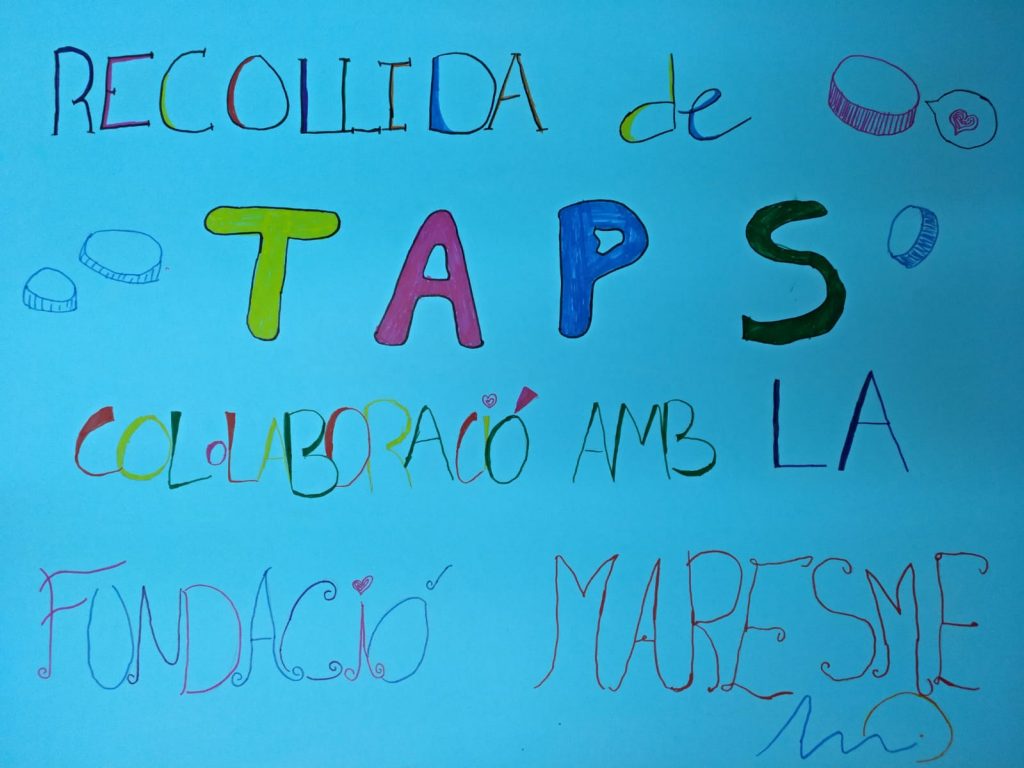 RECOLLIDA de
TAPS
COL·LABORACIÓ AMB LA
FUNDACIÓ MARESME